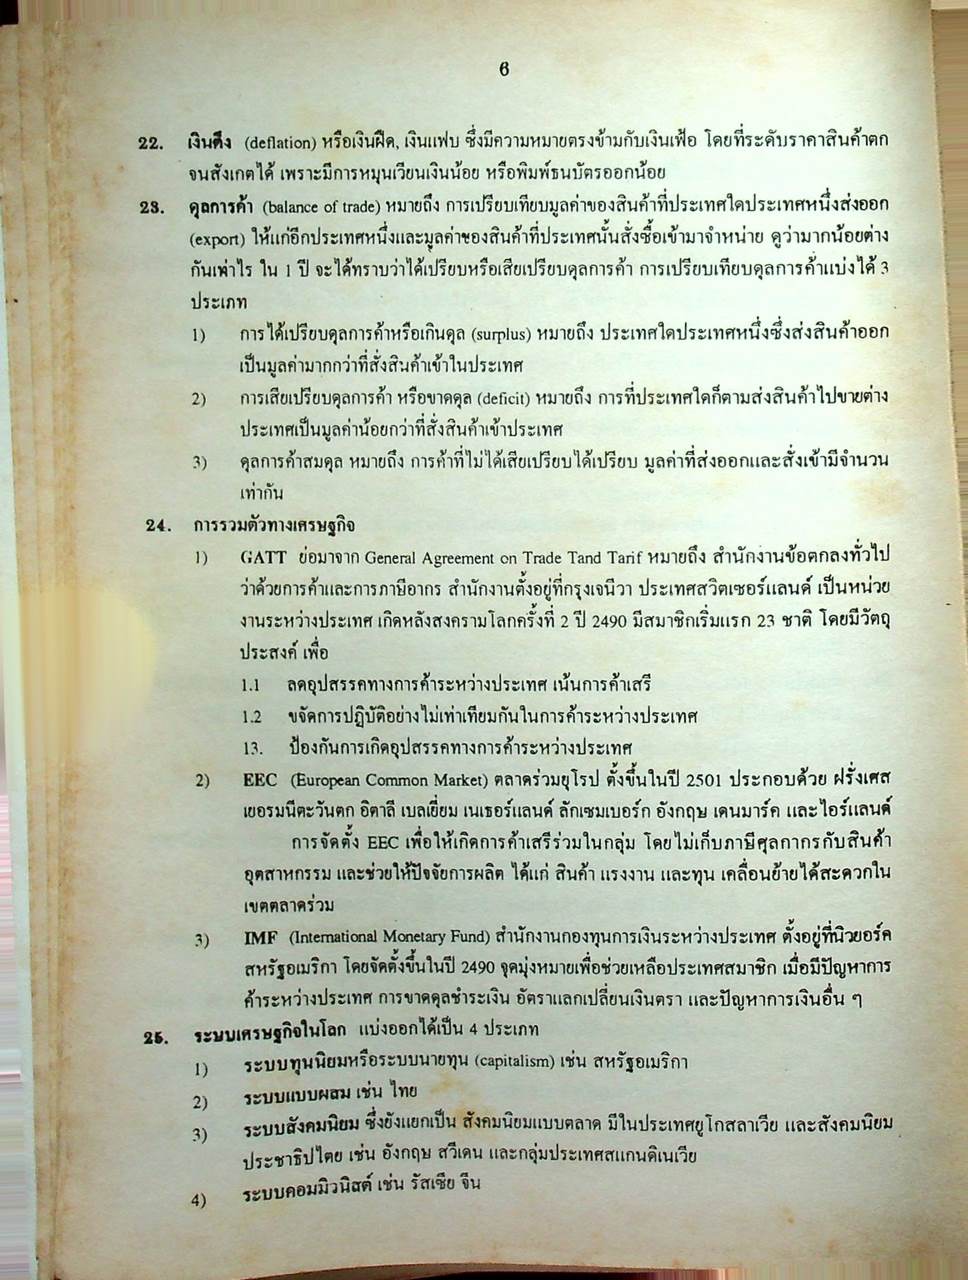 6
22. เงินตึง (deflation) หรือเงินฝืด, เงินแฟบ ซึ่งมีความหมายตรงข้ามกับเงินเฟ้อ โดยที่ระดับราคาสินค้าตก
จนสังเกตได้ เพราะมีการหมุนเวียนเงินน้อย หรือพิมพ์ธนบัตรออกน้อย
23. ดุลการค้า (balance of trade) หมายถึง การเปรียบเทียบมูลค่าของสินค้าที่ประเทศใดประเทศหนึ่งส่งออก
(export) ให้แก่อีกประเทศหนึ่งและมูลค่าของสินค้าที่ประเทศนั้นสั่งซื้อเข้ามาจำหน่าย ดูว่ามากน้อยต่าง
กันเท่าไร ใน 1 ปี จะได้ทราบว่าได้เปรียบหรือเสียเปรียบดุลการค้า การเปรียบเทียบดุลการค้าแบ่งได้ 3
ประเภท
1) การได้เปรียบดุลการค้าหรือเกินดุล (surplus) หมายถึง ประเทศใดประเทศหนึ่งซึ่งส่งสินค้าออก
เป็นมูลค่ามากกว่าที่สั่งสินค้าเข้าในประเทศ
2) การเสียเปรียบดุลการค้า หรือขาดดุล (deficit) หมายถึง การที่ประเทศใดก็ตามส่งสินค้าไปขายต่าง
ประเทศเป็นมูลค่าน้อยกว่าที่สั่งสินค้าเข้าประเทศ
3) ดุลการค้าสมดุล หมายถึง การค้าที่ไม่ได้เสียเปรียบได้เปรียบ มูลค่าที่ส่งออกและสั่งเข้ามีจำนวน
เท่ากัน
24. การรวมตัวทางเศรษฐกิจ
1) GATT ย่อมาจาก General Agreement on Trade Tand Tarif หมายถึง สำนักงานข้อตกลงทั่วไป
ว่าด้วยการค้าและการภาษีอากร สำนักงานตั้งอยู่ที่กรุงเจนีวา ประเทศสวิตเซอร์แลนด์ เป็นหน่วย
งานระหว่างประเทศ เกิดหลังสงครามโลกครั้งที่ 2 ปี 2490 มีสมาชิกเริ่มแรก 23 ชาติ โดยมีวัตถุ
ประสงค์ เพื่อ
1.1 ลดอุปสรรคทางการค้าระหว่างประเทศ เน้นการค้าเสรี
1.2 ขจัดการปฏิบัติอย่างไม่เท่าเทียมกันในการค้าระหว่างประเทศ
13. ป้องกันการเกิดอุปสรรคทางการค้าระหว่างประเทศ
2) EEC (European Common Market) ตลาดร่วมยุโรป ตั้งขึ้นในปี 2501 ประกอบด้วย ฝรั่งเศส
เยอรมนีตะวันตก อิตาลี เบลเยี่ยม เนเธอร์แลนด์ ลักเซมเบอร์ก อังกฤษ เดนมาร์ค และไอร์แลนด์
การจัดตั้ง EEC เพื่อให้เกิดการค้าเสรีร่วมในกลุ่ม โดยไม่เก็บภาษีศุลกากรกับสินค้า
อุตสาหกรรม และช่วยให้ปัจจัยการผลิต ได้แก่ สินค้า แรงงาน และทุน เคลื่อนย้ายได้สะดวกใน
เขตตลาดร่วม
3) IMF (International Monetary Fund) สำนักงานกองทุนการเงินระหว่างประเทศ ตั้งอยู่ที่นิวยอร์ค
สหรัฐอเมริกา โดยจัดตั้งขึ้นในปี 2490 จุดมุ่งหมายเพื่อช่วยเหลือประเทศสมาชิก เมื่อมีปัญหาการ
ค้าระหว่างประเทศ การขาดดุลชำระเงิน อัตราแลกเปลี่ยนเงินตรา และปัญหาการเงินอื่น ๆ
25. ระบบเศรษฐกิจในโลก แบ่งออกได้เป็น 4 ประเภท
1) ระบบทุนนิยมหรือระบบนายทุน (capitalism) เช่น สหรัฐอเมริกา
2) ระบบแบบผสม เช่น ไทย
3) ระบบสังคมนิยม ซึ่งยังแยกเป็น สังคมนิยมแบบตลาด มีในประเทศยูโกสลาเวีย และสังคมนิยม
ประชาธิปไตย เช่น อังกฤษ สวีเดน และกลุ่มประเทศสแกนดิเนเวีย
4) ระบบคอมมิวนิสต์ เช่น รัสเซีย จีน